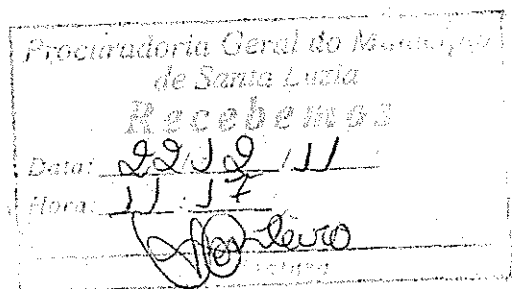 Procuradoria Geral do Município
de Santa Luzia
Recebemos
Data: 22/12/11
Hora: 11:17